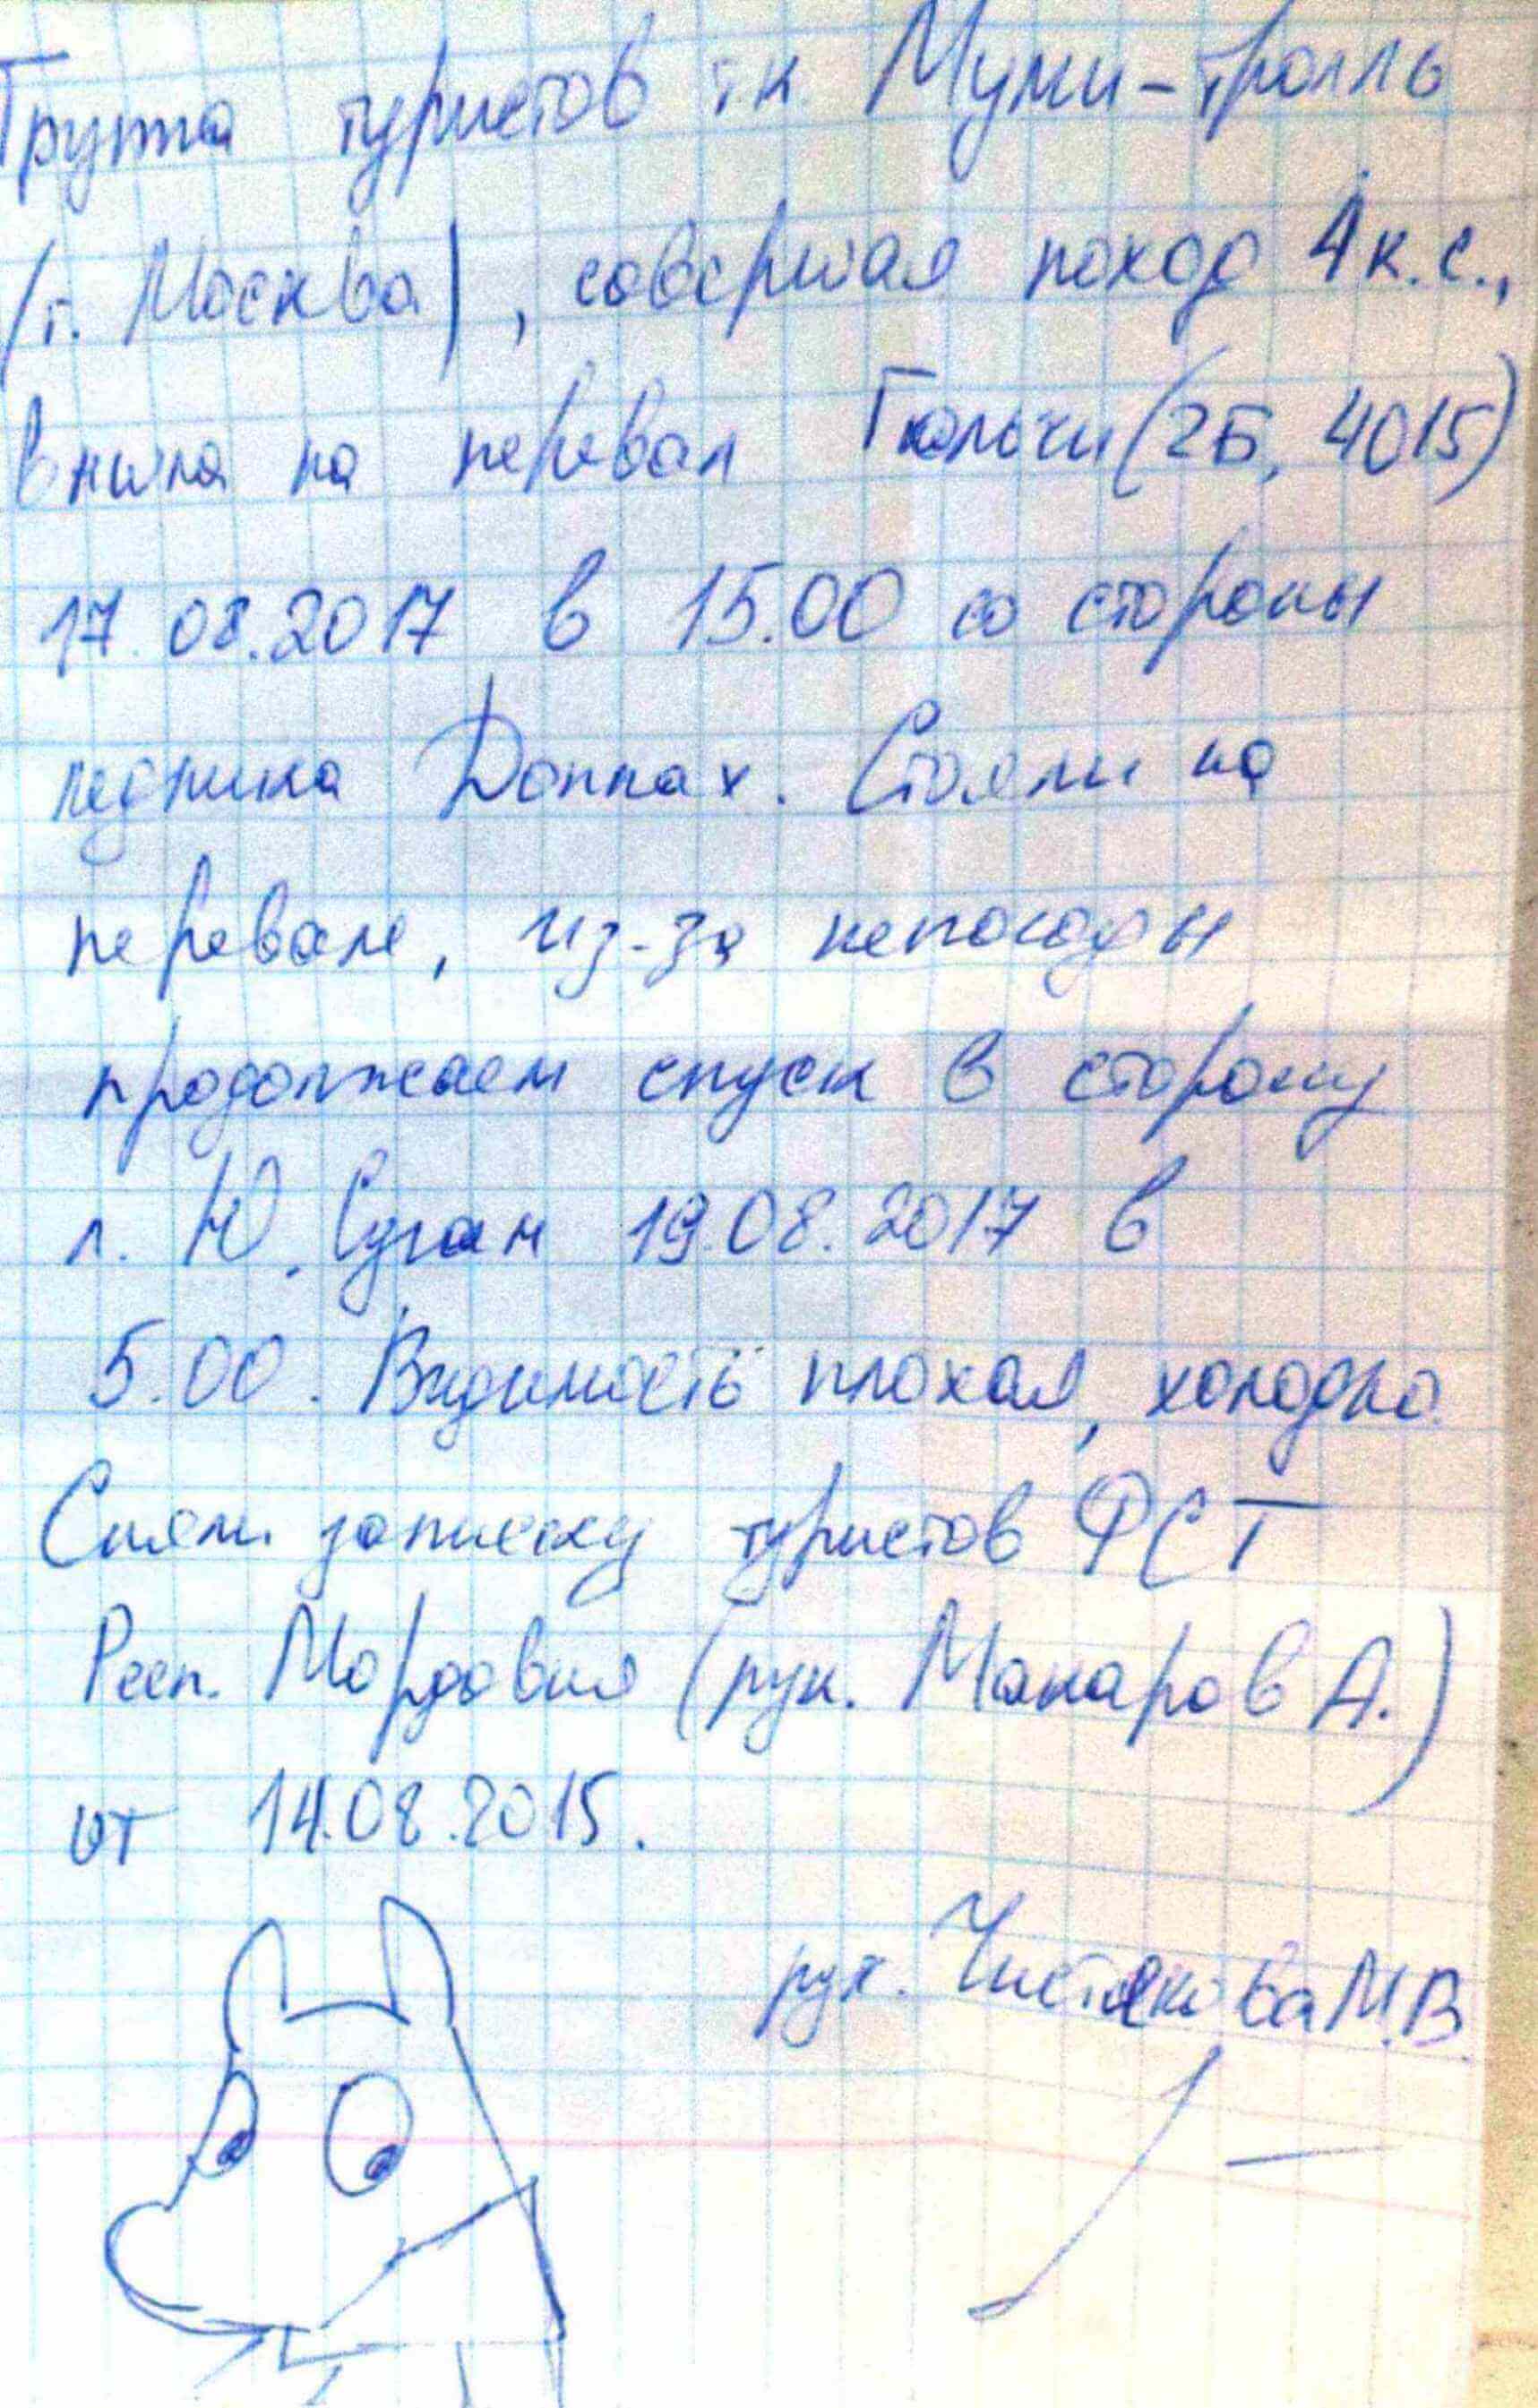 Группа туристов т.к. Муми-тролль
(г. Москва), совершая поход 4 к.с.,
вышла на перевал Гюльчи (2Б, 4015)
17.08.2017 в 15.00 со стороны
ледника Доппах. Стояли на
перевале, из-за непогоды
продолжаем спуск в сторону
л. Ю. Суган 19.08.2017 в
5.00. Видимость плохая, холодно.
Сняли записку туристов ФСТ
Респ. Мордовия (рук. Макаров А.)
от 14.08.2015.
рук. Чистякова М.В.